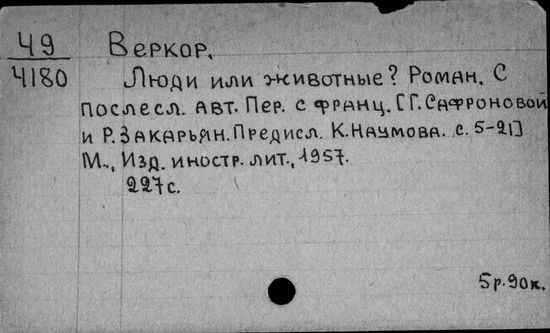 49
4180
Веркор.
Люди или животные? Роман. С
послесл. авт. Пер. с франц. [Г. Сафроновой
и Р. Закарьян. Предисл. К. Наумова. с. 5-21]
М., Изд. иностр. лит., 1957.
227 с.
5 р. 90 к.